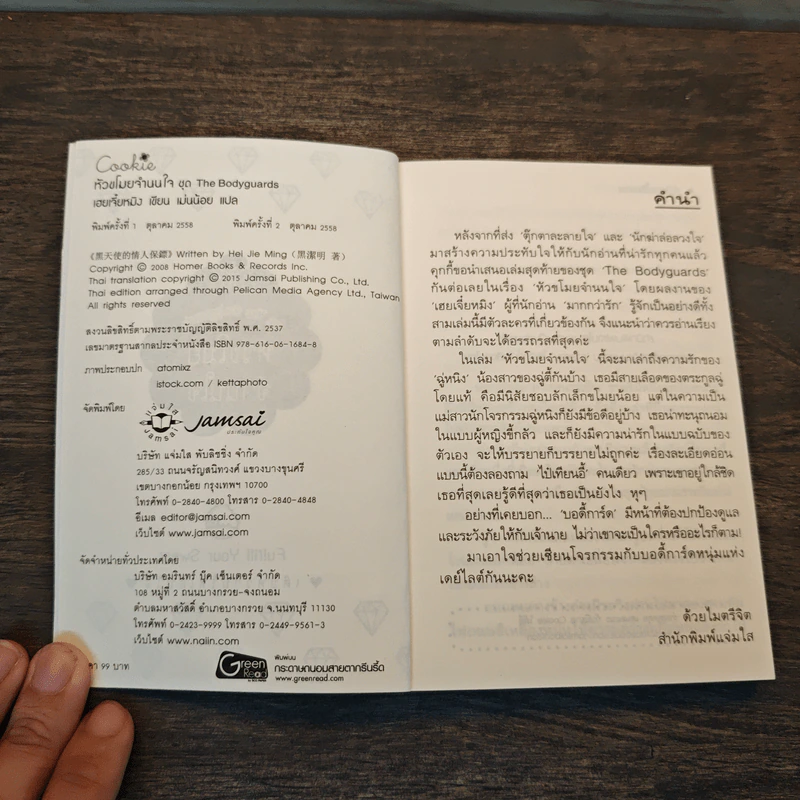 Cookie
หัวขโมยจำนนใจ ชุด The Bodyguards
เฮยเจี๋ยหมิง เขียน เม่นน้อย แปล
พิมพ์ครั้งที่ 1 ตุลาคม 2558 พิมพ์ครั้งที่ 2 ตุลาคม 2558
《黑天使的情人保鏢》 Written by Hei Jie Ming (黑潔明 著)
Copyright © 2008 Homer Books & Records Inc.
Thai translation copyright © 2015 Jamsai Publishing Co., Ltd.
Thai edition arranged through Pelican Media Agency Ltd., Taiwan
All rights reserved
สงวนลิขสิทธิ์ตามพระราชบัญญัติลิขสิทธิ์ พ.ศ. 2537
เลขมาตรฐานสากลประจำหนังสือ ISBN 978-616-06-1684-8
ภาพประกอบปก atomixz
istock.com / kettaphoto
จัดพิมพ์โดย
แจ่มใส
Jamsai
jamsai
บริษัท แจ่มใส พับลิชชิ่ง จำกัด
285/33 ถนนจรัญสนิทวงศ์ แขวงบางขุนศรี
เขตบางกอกน้อย กรุงเทพฯ 10700
โทรศัพท์ 0-2840-4800 โทรสาร 0-2840-4848
อีเมล editor@jamsai.com
เว็บไซต์ www.jamsai.com
จัดจำหน่ายทั่วประเทศโดย
บริษัท อมรินทร์ บุ๊ค เซ็นเตอร์ จำกัด
108 หมู่ที่ 2 ถนนบางกรวย-จงถนอม
ตำบลมหาสวัสดิ์ อำเภอบางกรวย จ.นนทบุรี 11130
โทรศัพท์ 0-2423-9999 โทรสาร 0-2449-9561-3
เว็บไซต์ www.naiin.com
99 บาท
Green Read
พิมพ์บน
กระดาษถนอมสายตากรีนรี้ด
www.greenread.com
คำนำ
หลังจากที่ส่ง 'ตุ๊กตาละลายใจ' และ 'นักฆ่าล่อลวงใจ'
มาสร้างความประทับใจให้กับนักอ่านที่น่ารักทุกคนแล้ว
คุกกี้ขอนำเสนอเล่มสุดท้ายของชุด 'The Bodyguards'
กันต่อเลยในเรื่อง 'หัวขโมยจำนนใจ' โดยผลงานของ
'เฮยเจี๋ยหมิง' ผู้ที่นักอ่าน 'มากกว่ารัก' รู้จักเป็นอย่างดีทั้ง
สามเล่มนี้มีตัวละครที่เกี่ยวข้องกัน จึงแนะนำว่าควรอ่านเรียง
ตามลำดับจะได้อรรถรสที่สุดค่ะ
ในเล่ม 'หัวขโมยจำนนใจ' นี้จะมาเล่าถึงความรักของ
'ฉู่หนิง' น้องสาวของฉู่ตี้กันบ้าง เธอมีสายเลือดของตระกูลฉู่
โดยแท้ คือมีนิสัยชอบลักเล็กขโมยน้อย แต่ในความเป็น
แม่สาวนักโจรกรรมฉู่หนิงก็ยังมีข้อดีอยู่บ้าง เธอน่าทะนุถนอม
ในแบบผู้หญิงขี้กลัว และก็ยังมีความน่ารักในแบบฉบับของ
ตัวเอง จะให้บรรยายก็บรรยายไม่ถูกค่ะ เรื่องละเอียดอ่อน
แบบนี้ต้องลองถาม 'ไป๋เทียนอี้' คนเดียว เพราะเขาอยู่ใกล้ชิด
เธอที่สุดเลยรู้ดีที่สุดว่าเธอเป็นยังไง หุๆ
อย่างที่เคยบอก... 'บอดี้การ์ด' มีหน้าที่ต้องปกป้องดูแล
และระวังภัยให้กับเจ้านาย ไม่ว่าเขาจะเป็นใครหรืออะไรก็ตาม!
มาเอาใจช่วยเซียนโจรกรรมกับบอดี้การ์ดหนุ่มแห่ง
เดย์ไลต์กันนะคะ
ด้วยไมตรีจิต
สำนักพิมพ์แจ่มใส